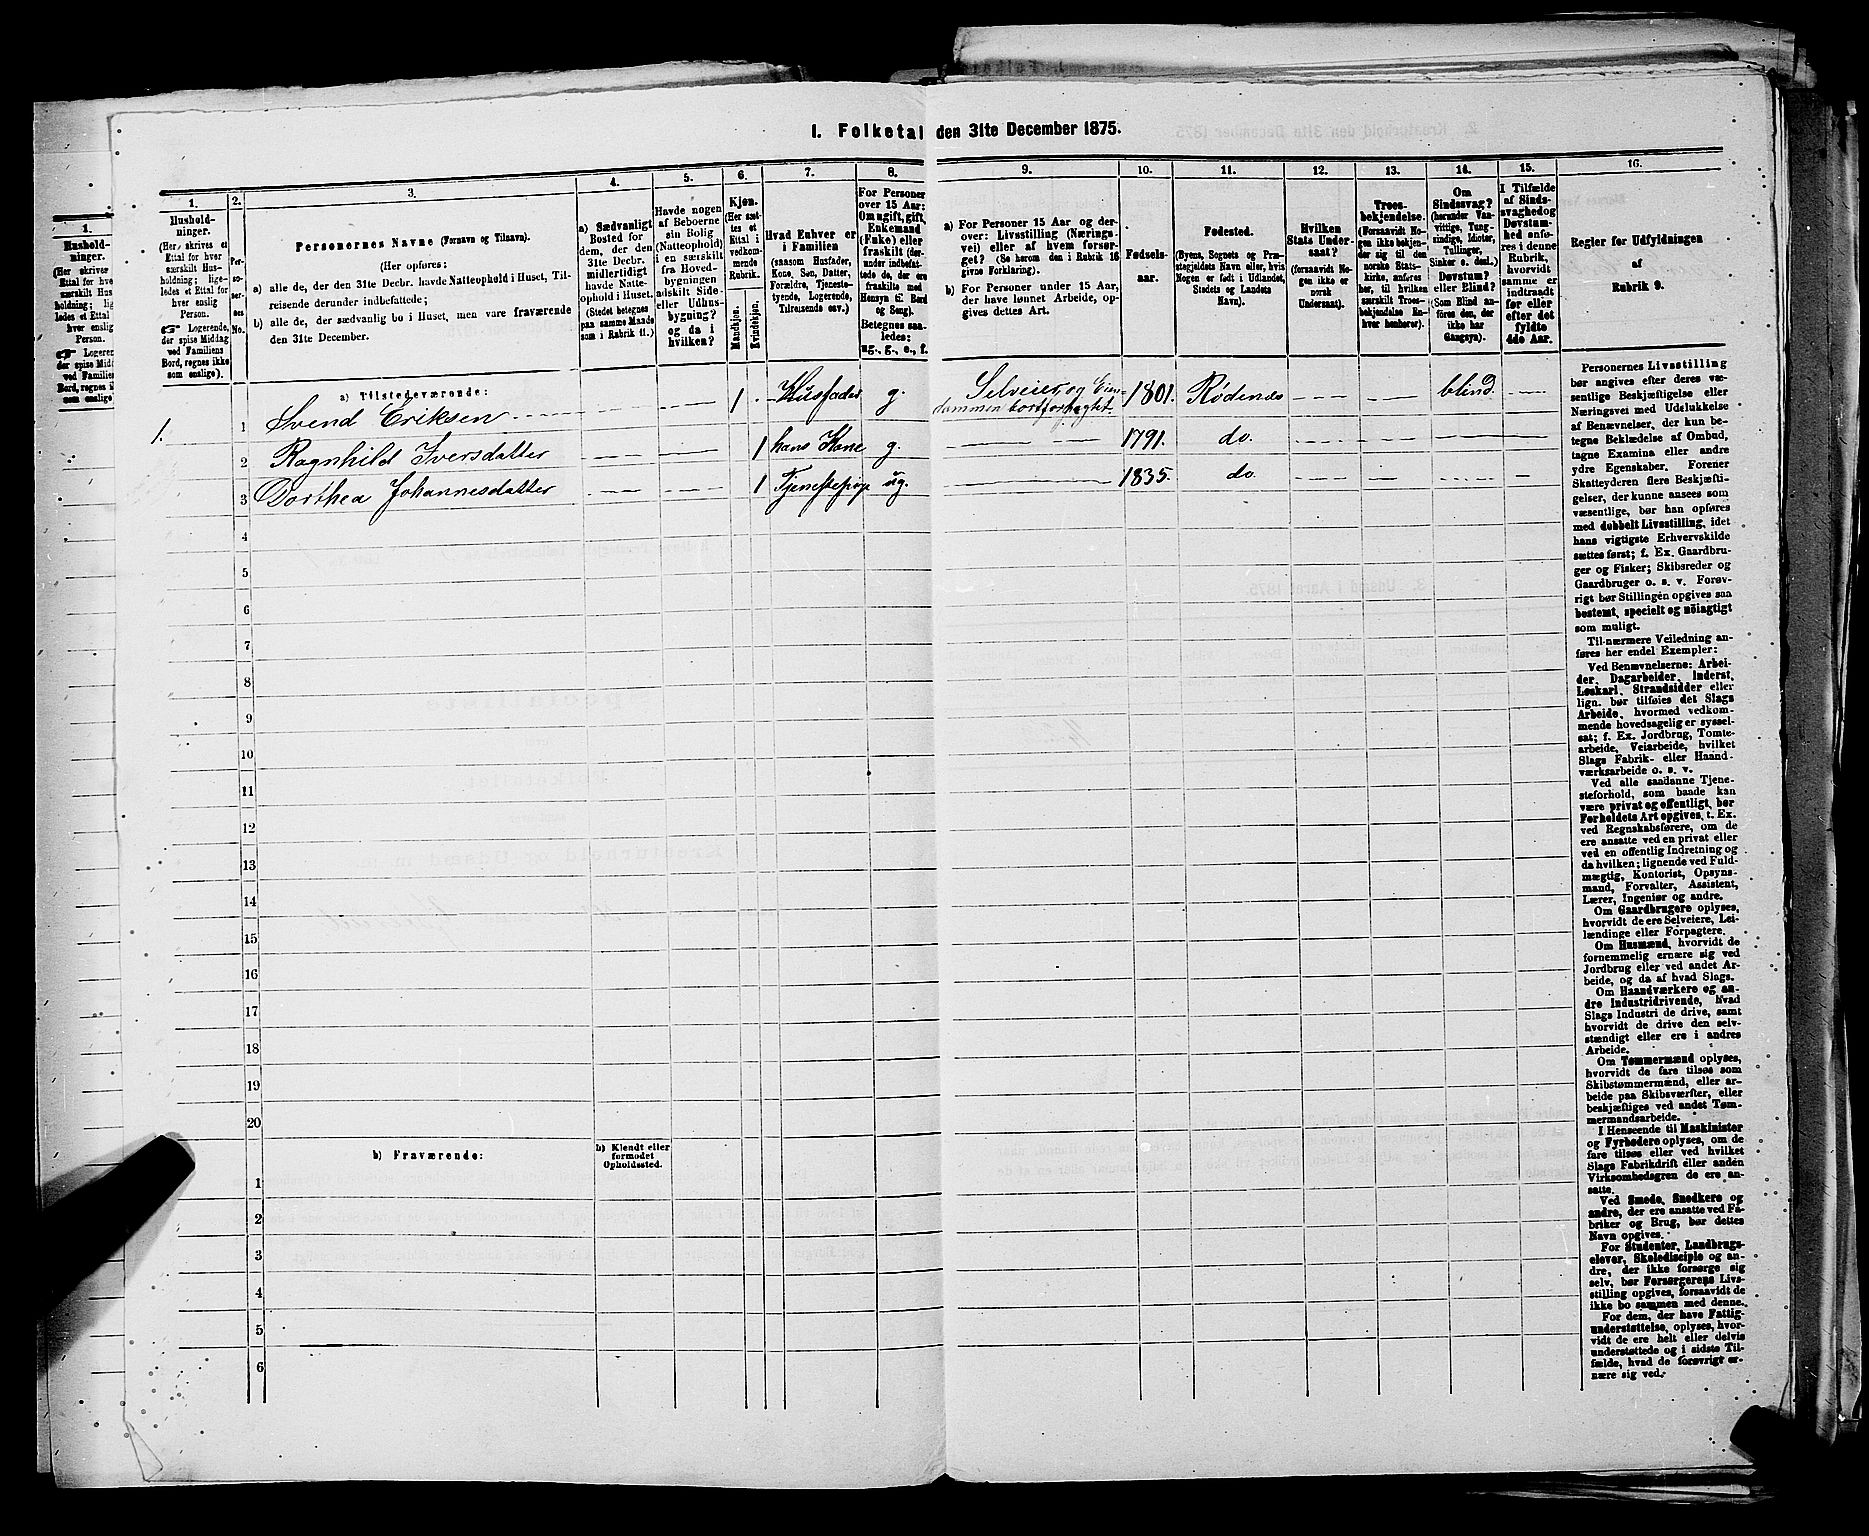 I. Folketal den 31te December 1875.
1.
Hushold-
ninger.
(Her skrives et
Ettal for hver
særskilt Hus-
holdning; lige-
ledes et Ettal
for hver
enslig
Person.
Logerende,
der spise Middag
ved Familiens
Bord, regnes ikke
som enslige).
2.
Per-
so-
ner-
nes
No.
3.
Personernes Navne (Fornavn og Tilnavn).
(Her opføres:
a) alle de, der den 31te Decbr. havde Natteophold i Huset, Til-
reisende derunder indbefattede;
b) alle de, der sædvanlig bo i Huset, men vare fraværende
den 31te December.
4.
a) Sædvanligt
Bosted for
dem, der den
31te Decbr.
midlertidigt
havde Natte-
ophold i Huset.
(Stedet betegnes
paa samme Maade
som i Rubrik 11.)
5.
Havde nogen
af Beboerne
sin Bolig
(Natteophold)
i en særskilt
fra Hoved-
bygningen
adskilt Side-
eller Udhus-
bygning?
og da i
hvilken?
6.
Kjøn.
(Her sæt-
tes et
Ettal i
vedkom-
mende
Rubrik.
Mandkjøn.
Kvindekjøn.
7.
Hvad Enhver er
i Familien
(saasom Husfader,
Kone, Søn, Datter,
Forældre, Tjeneste-
tyende, Logerende,
Tilreisende osv.)
8.
For Personer
over 15 Aar:
Om ugift, gift,
Enkemand
(Enke) eller
fraskilt (der-
under indbefat-
tede de, der ere
fraskilte med
Hensyn til Bord
og Seng).
Betegnes saa-
ledes:
ug., g., e., f.
9.
a) For Personer 15 Aar og der-
over: Livsstilling (Nærings-
vei) eller af hvem forsør-
get? (Se herom den i Rubrik 16
givne Forklaring).
b) For Personer under 15 Aar,
der have lønnet Arbeide, op-
gives dettes Art.
10.
Fødsels-
aar.
11.
Fødested.
(Byens, Sognets og Præ-
stegjeldets Navn eller, hvis
Nogen er født i Udlandet,
Stedets og Landets
Navn).
12.
Hvilken
Stats Under-
saat?
(forsaavidt No-
gen ikke er
norsk
Undersaat).
13.
Troes-
bekjendelse.
(Forsaavidt No-
gen ikke bekjen-
der sig til den
norske Stats-
kirke, anføres
her, til hvilken
særskilt Troes-
bekjendelse En-
hver henhører).
14.
Om
Sindssvag?
(herunder Van-
vittige, Tung-
sindige, Idioter,
Tullinger,
Sinker o. desl.)
Døvstum?
eller Blind?
(Som Blind an-
føres den, der
ikke har
Gangsyn).
15.
I Tilfælde
af Sinds-
svaghed og
Døvstum-
hed anfø-
res i denne
Rubrik,
hvorvidt
samme er
indtraadt
før eller
efter det
fyldte
4de Aar.
16.
Regler for Udfyldningen
af
Rubrik 9.
a) Tilstedeværende:
1. 1 Svend Eriksen 1 Husfader g. Selveier og Eien- 1801. Rødenæs blind
dommen bortforpagtet
2 Ragnhild Iversdatter 1 hans Kone g. 1791. do.
3 Dorthea Johannesdatter 1 Tjenestepige ug. 1835. do.
4
5
6
7
8
9
10
11
12
13
14
15
16
17
18
19
20
b) Fraværende:
b) Kjendt eller
formodet
Opholdssted.
1
2
3
4
5
6
Personernes Livsstilling
bør angives efter deres væ-
sentlige Beskjæftigelse eller
Næringsvei med Udelukkelse
af Benævnelser, der kun be-
tegne Beklædelse af Ombud,
tagne Examina eller andre
ydre Egenskaber. Forener
Skatteyderen flere Beskjæfti-
gelser, der kunne ansees som
væsentlige, bør han opføres
med dobbelt Livsstilling, idet
hans vigtigste Erhvervskilde
sættes først; f. Ex. Gaardbru-
ger og Fisker; Skibsreder og
Gaardbruger o. s. v. Forøv-
rigt bør Stillingen opgives saa
bestemt, specielt og nøiagtigt
som muligt.
Til nærmere Veiledning an-
føres her endel Exempler:
Ved Benævnelserne: Arbei-
der, Dagarbeider, Inderst,
Løskarl, Strandsidder eller
lign. bør tilføies det Slags
Arbeide, hvormed vedkom-
mende hovedsagelig er syssel-
sat; f. Ex. Jordbrug, Tomte-
arbeide, Veiarbeide, hvilket
Slags Fabrik- eller Haand-
værksarbeide o. s. v.
Ved alle saadanne Tjene-
steforhold, som baade kan
være privat og offentligt, bør
Forholdets Art opgives, t. Ex.
ved Regnskabsførere, om de
ere ansatte ved en privat eller
ved en offentlig Indretning og
da hvilken; lignende ved Fuld-
mægtig, Kontorist, Opsyns-
mand, Forvalter, Assistent,
Lærer, Ingeniør og andre.
Om Gaardbrugere oplyses,
hvorvidt de ere Selveiere, Lei-
lændinge eller Forpagtere.
Om Husmænd, hvorvidt de
fornemmelig ernære sig ved
Jordbrug eller ved andet Ar-
beide, og da af hvad Slags.
Om Haandværkere og an-
dre Industridrivende, hvad
Slags Industri de drive, samt
hvorvidt de drive den selv-
stændigt eller ere i andres
Arbeide.
Om Tømmermænd oplyses,
hvorvidt de fare tilsøs som
Skibstømmermænd, eller ar-
beide paa Skibsværfter, eller
beskjæftiges ved andet Tøm-
mermandsarbeide.
I Henseende til Maskinister
og Fyrbødere oplyses, om de
fare tilsøs eller ved hvilket
Slags Fabrikdrift eller anden
Virksomhedsgren de ere an-
satte.
Ved Smede, Snedkere og
andre, der ere ansatte ved Fa-
briker og Brug, bør dettes
Navn opgives.
For Studenter, Landbrugs-
elever, Skoledisciple og an-
dre, der ikke forsørge sig
selv, bør Forsørgerens Livs-
stilling opgives, forsaavidt de
ikke bo sammen med denne.
For dem, der have Fattig-
understøttelse, oplyses, hvor-
vidt de ere helt eller delvis
understøttede og i sidste Til-
fælde, hvad de forøvrigt er-
nære sig ved.